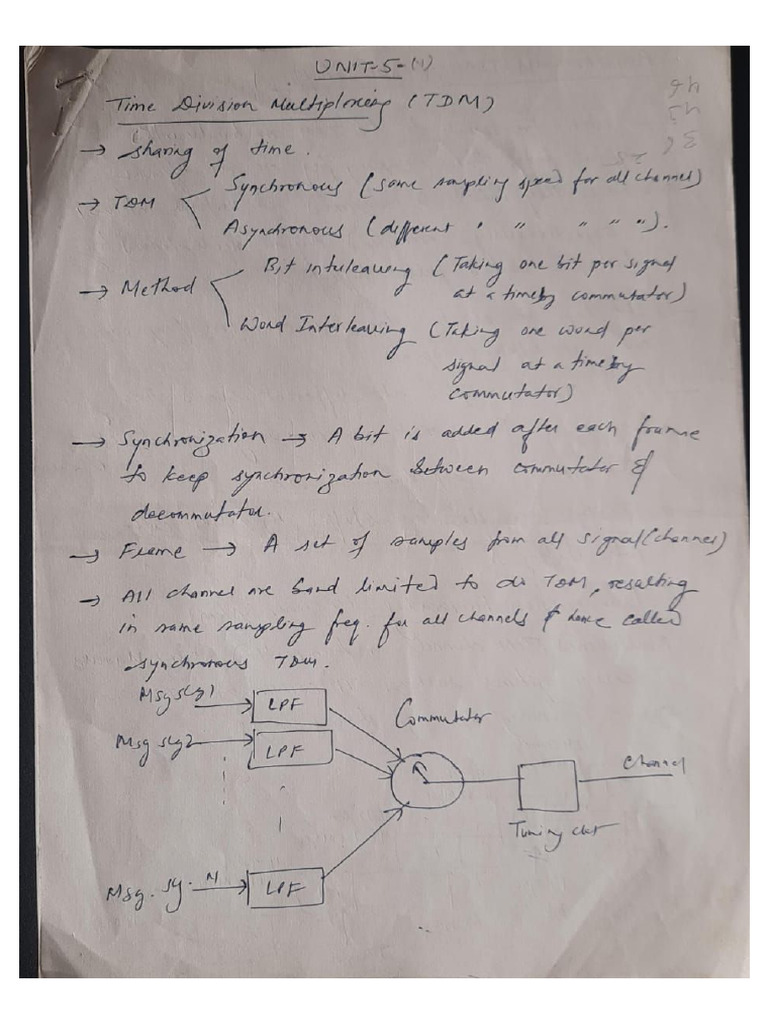 UNIT-5-(1)
Time Division Multiplexing (TDM)
→ Sharing of time.
→ TDM Synchronous (same sampling speed for all channel)
Asynchronous (different " " " " ").
→ Method Bit interleaving (Taking one bit per signal
at a time by commutator)
Word Interleaving (Taking one word per
signal at a time by
commutator)
→ Synchronization → A bit is added after each frame
to keep synchronization between commutator &
decommutator.
→ Frame → A set of samples from all signal (channel)
→ All channel are band limited to do TDM, resulting
in same sampling freq. for all channels & hence called
synchronous TDM.
Msg sig 1 LPF
Commutator
Msg sig 2 LPF
Channel
Msg. sg. N LPF